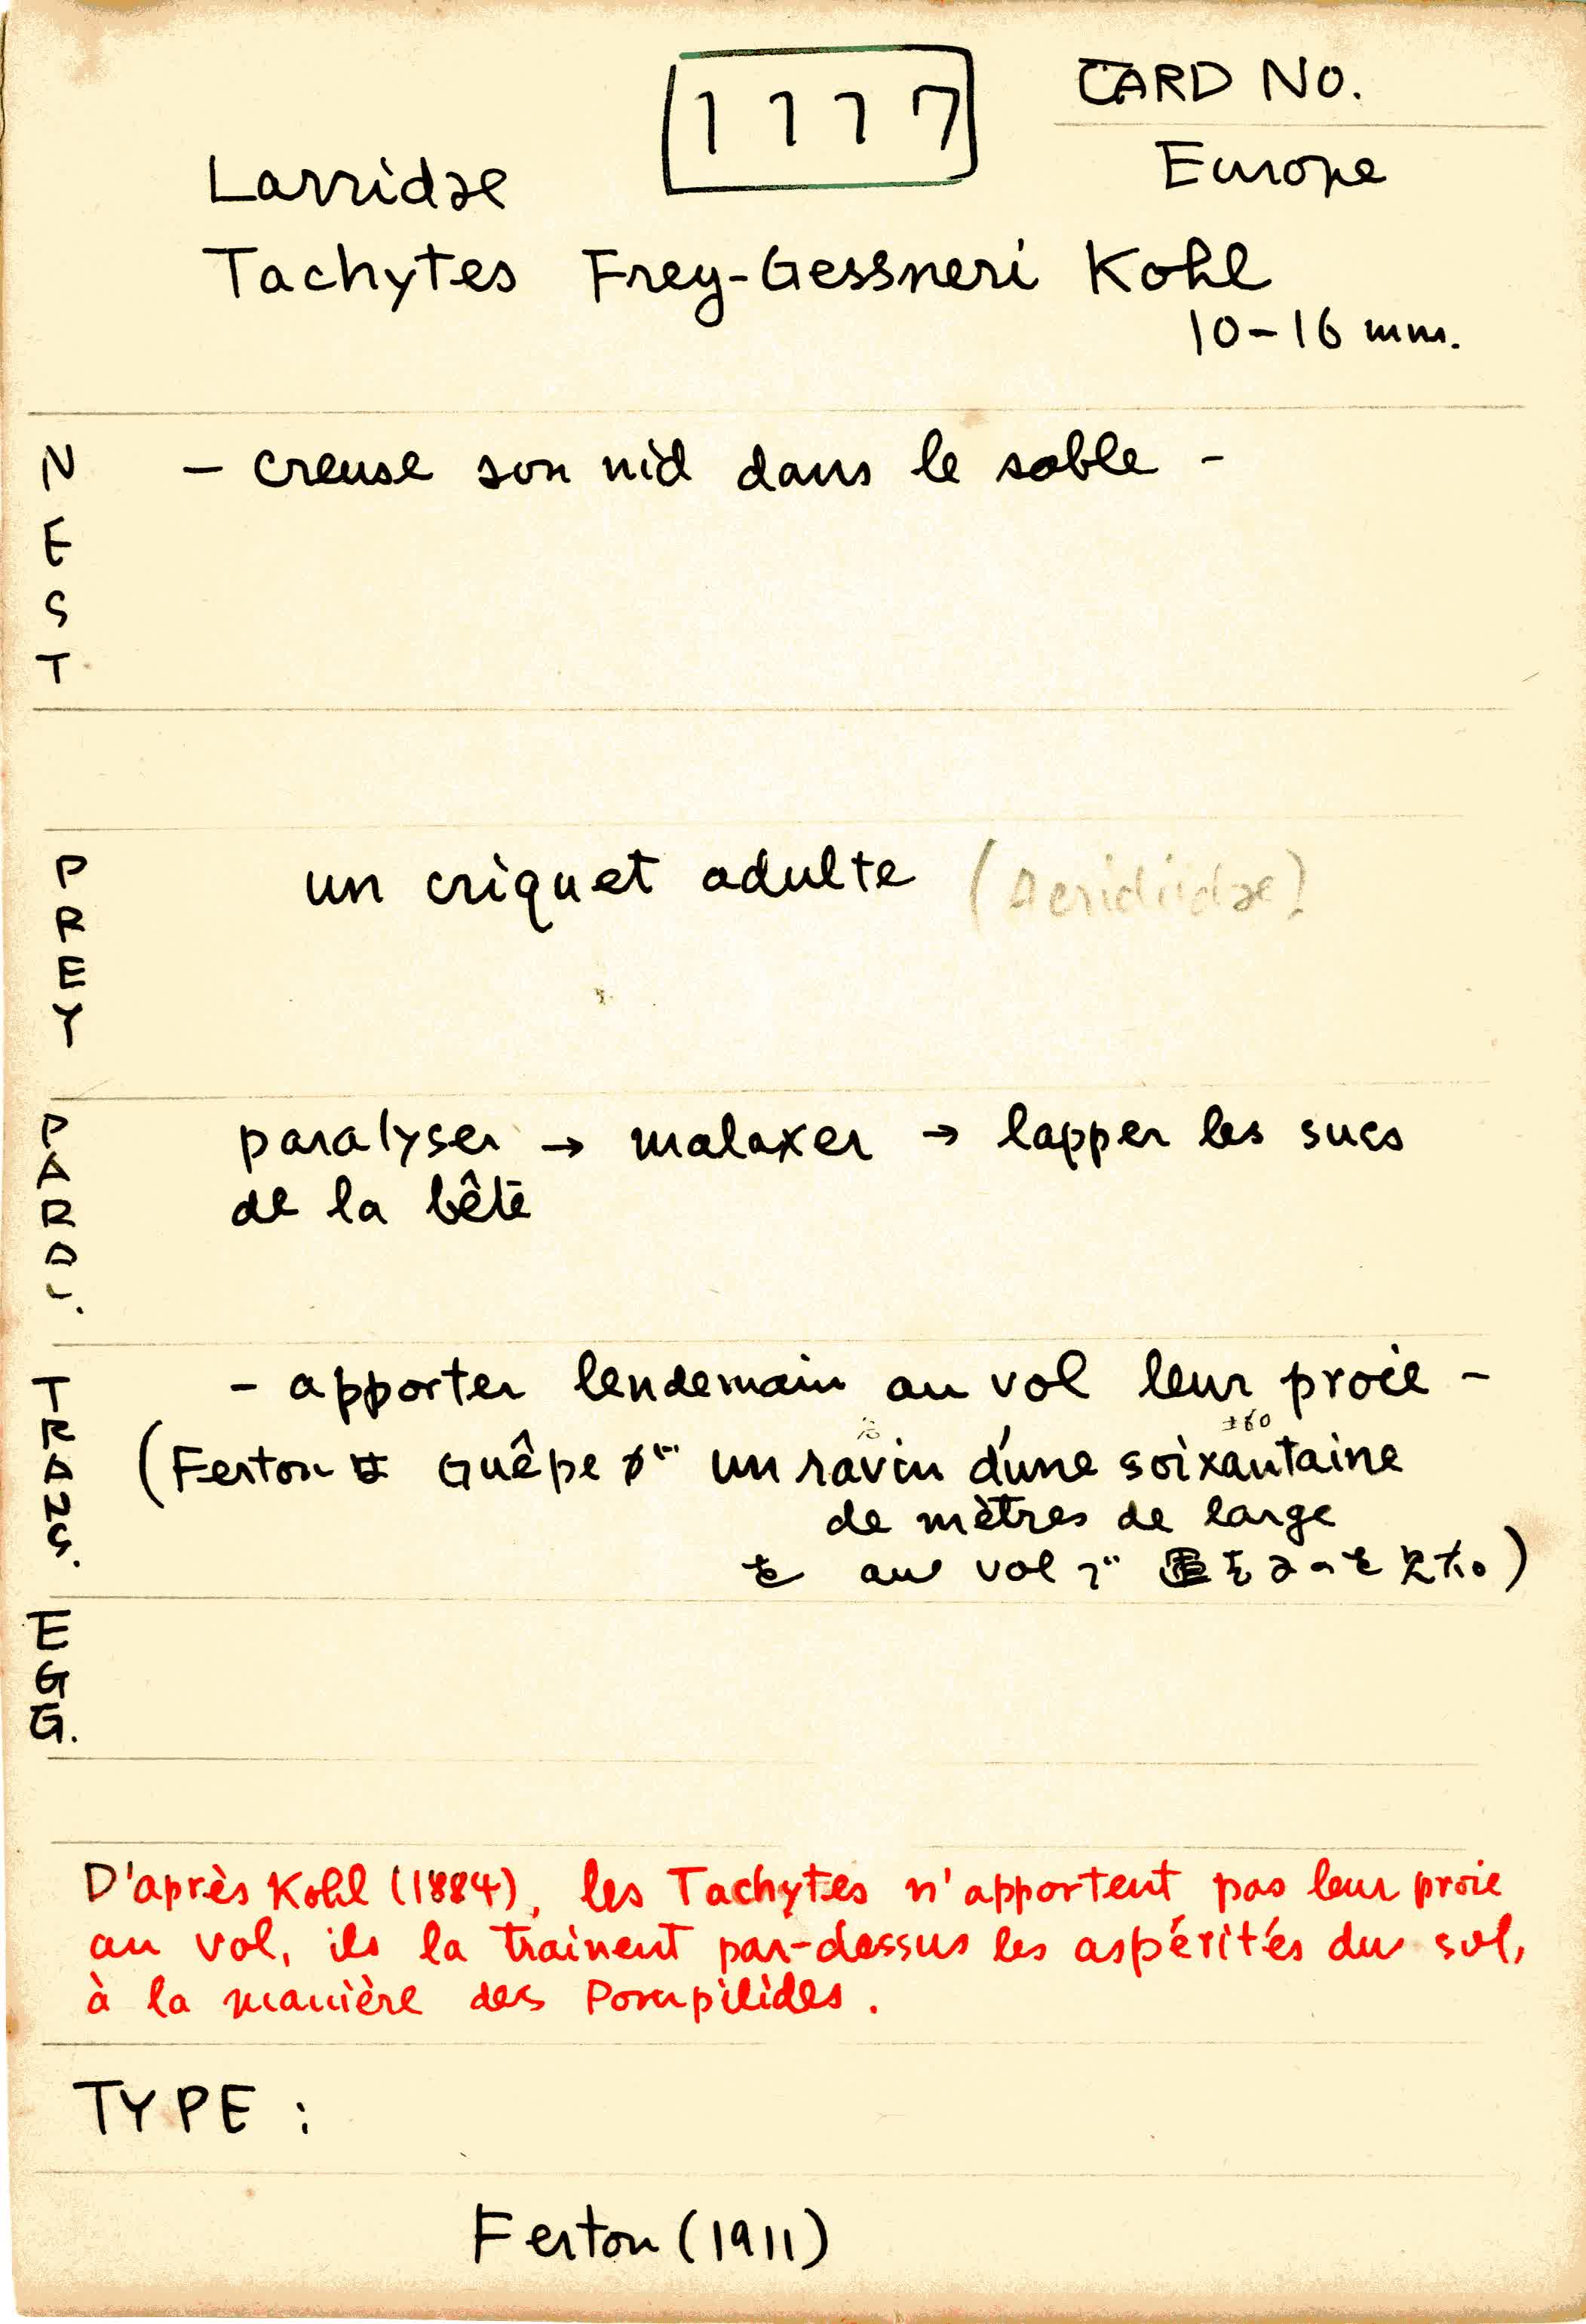 CARD NO.
1117
Europe
Larridae
Tachytes Frey-Gessneri Kohl
10-16 mm.
NEST
- creuse son nid dans le sable -
PREY
un criquet adulte (Acridiidae)
PARAL.
paralyser → malaxer → lapper les sucs
de la bête
TRANS.
- apporter lendemain au vol leur proie -
±60
(Ferton は Guêpe が un ravin d'une soixantaine
de mètres de large
を au vol で 運をるのを見た。)
EGG.
D'après Kohl (1884), les Tachytes n'apportent pas leur proie
au vol, ils la trainent par-dessus les aspérités du sol,
à la manière des Pompilides.
TYPE :
Ferton (1911)